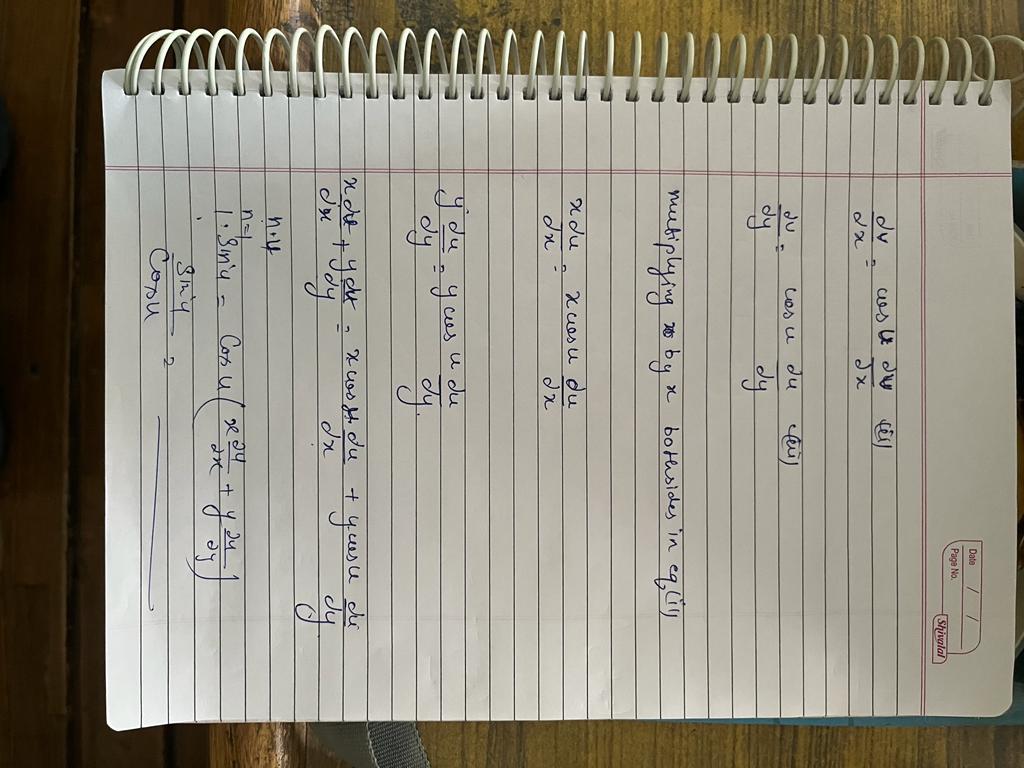 Date / /
Page No.
Shivalal
dv/dx = cos u du/dx (i)
du/dy = cos u du/dy (ii)
multiplying by x bothsides in eq (i)
x du/dx = x cos u du/dx
y du/dy = y cos u du/dy.
x du/dx + y du/dy = x cos u du/dx + y cos u du/dy.
n.u
n=1
1. Sin u = Cos u (x ∂u/∂x + y ∂u/∂y)
Sin u / Cos u =